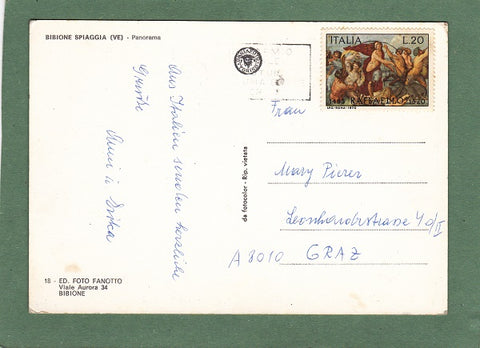 BIBIONE SPIAGGIA (VE) - Panorama
Aus Italien senden herzliche
Grüße
18 - ED. FOTO FANOTTO
Viale Aurora 34
BIBIONE
de fotocolor - Rip. vietata
ITALIA L.20
1483 RAFFAELLO 1520
Frau
Mary Pierer
Leonhardstrasse 4 d/II
A 8010 GRAZ